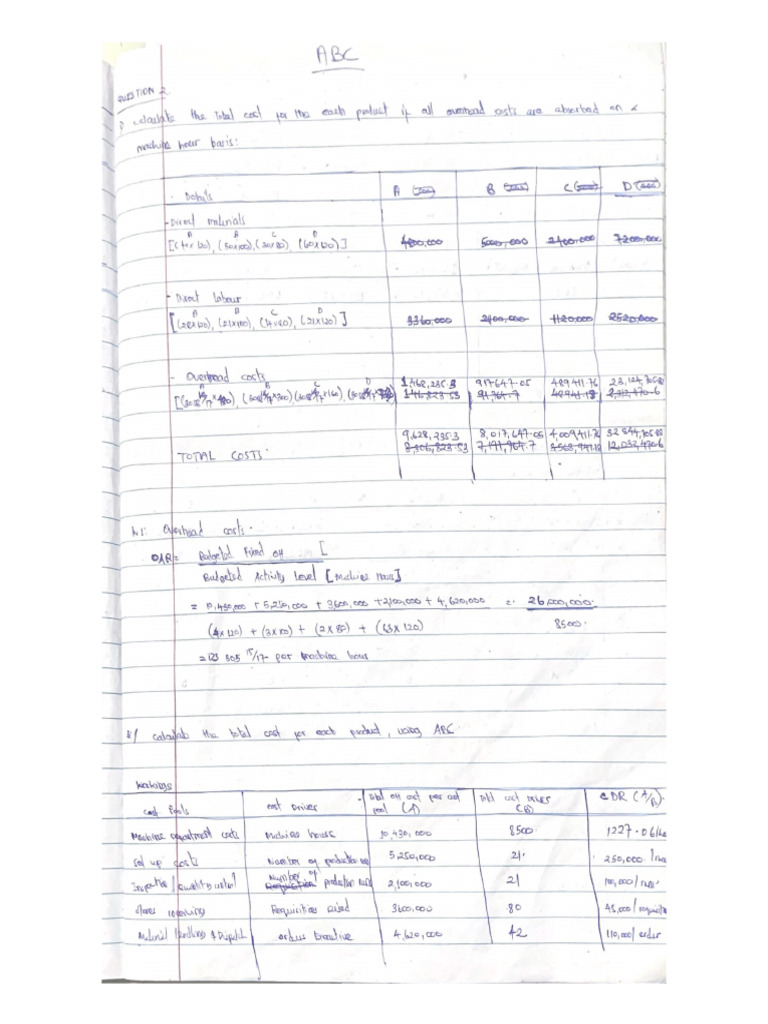 ABC
QUESTION 2
calculate the total cost for the each product if all overhead costs are absorbed on a
machine hour basis:
Details A B C D
- Direct materials
[(40x120), (50x100), (30x80), (60x120)] 4800,000 5000,000 2400,000 7200,000
A B C D
- Direct labour
A B C D
[(28x120), (21x100), (14x80), (21x120)] 3360,000 2100,000 1120,000 2520,000
- Overhead costs 1,468,235.3 917647.05 489411.76
A B C D
146,823.53 91,764.7 48941.18 2,312,470.6
9,628,235.3 8,017,647.05 4,009,411.76
TOTAL COSTS: 8,306,823.53 7,191,964.7 12,032,470.6
Overhead costs.
OAR = Budgeted Fixed OH
Budgeted Activity Level [Machine Hours]
= 10,430,000 + 5,250,000 + 3,600,000 + 2,100,000 + 4,620,000 = 26,000,000
(4x120) + (3x100) + (2x80) + (63x120) 8500
305 15/17 per machine hour
calculate the total cost for each product, using ABC.
Workings
Cost Pools Cost Driver Total OH cost per cost pool (A) Total cost drivers (B) CDR (A/B)
Machine department costs Machine hours 10,430,000 8500 1227.06
Set up costs Number of production runs 5,250,000 21 250,000 /run
Inspection/quality control Number of production runs 2,100,000 21 100,000/run
Stores receiving Requisitions raised 3600,000 80 45,000/
Material handling & Dispatch orders executive 4,620,000 42 110,000/ order